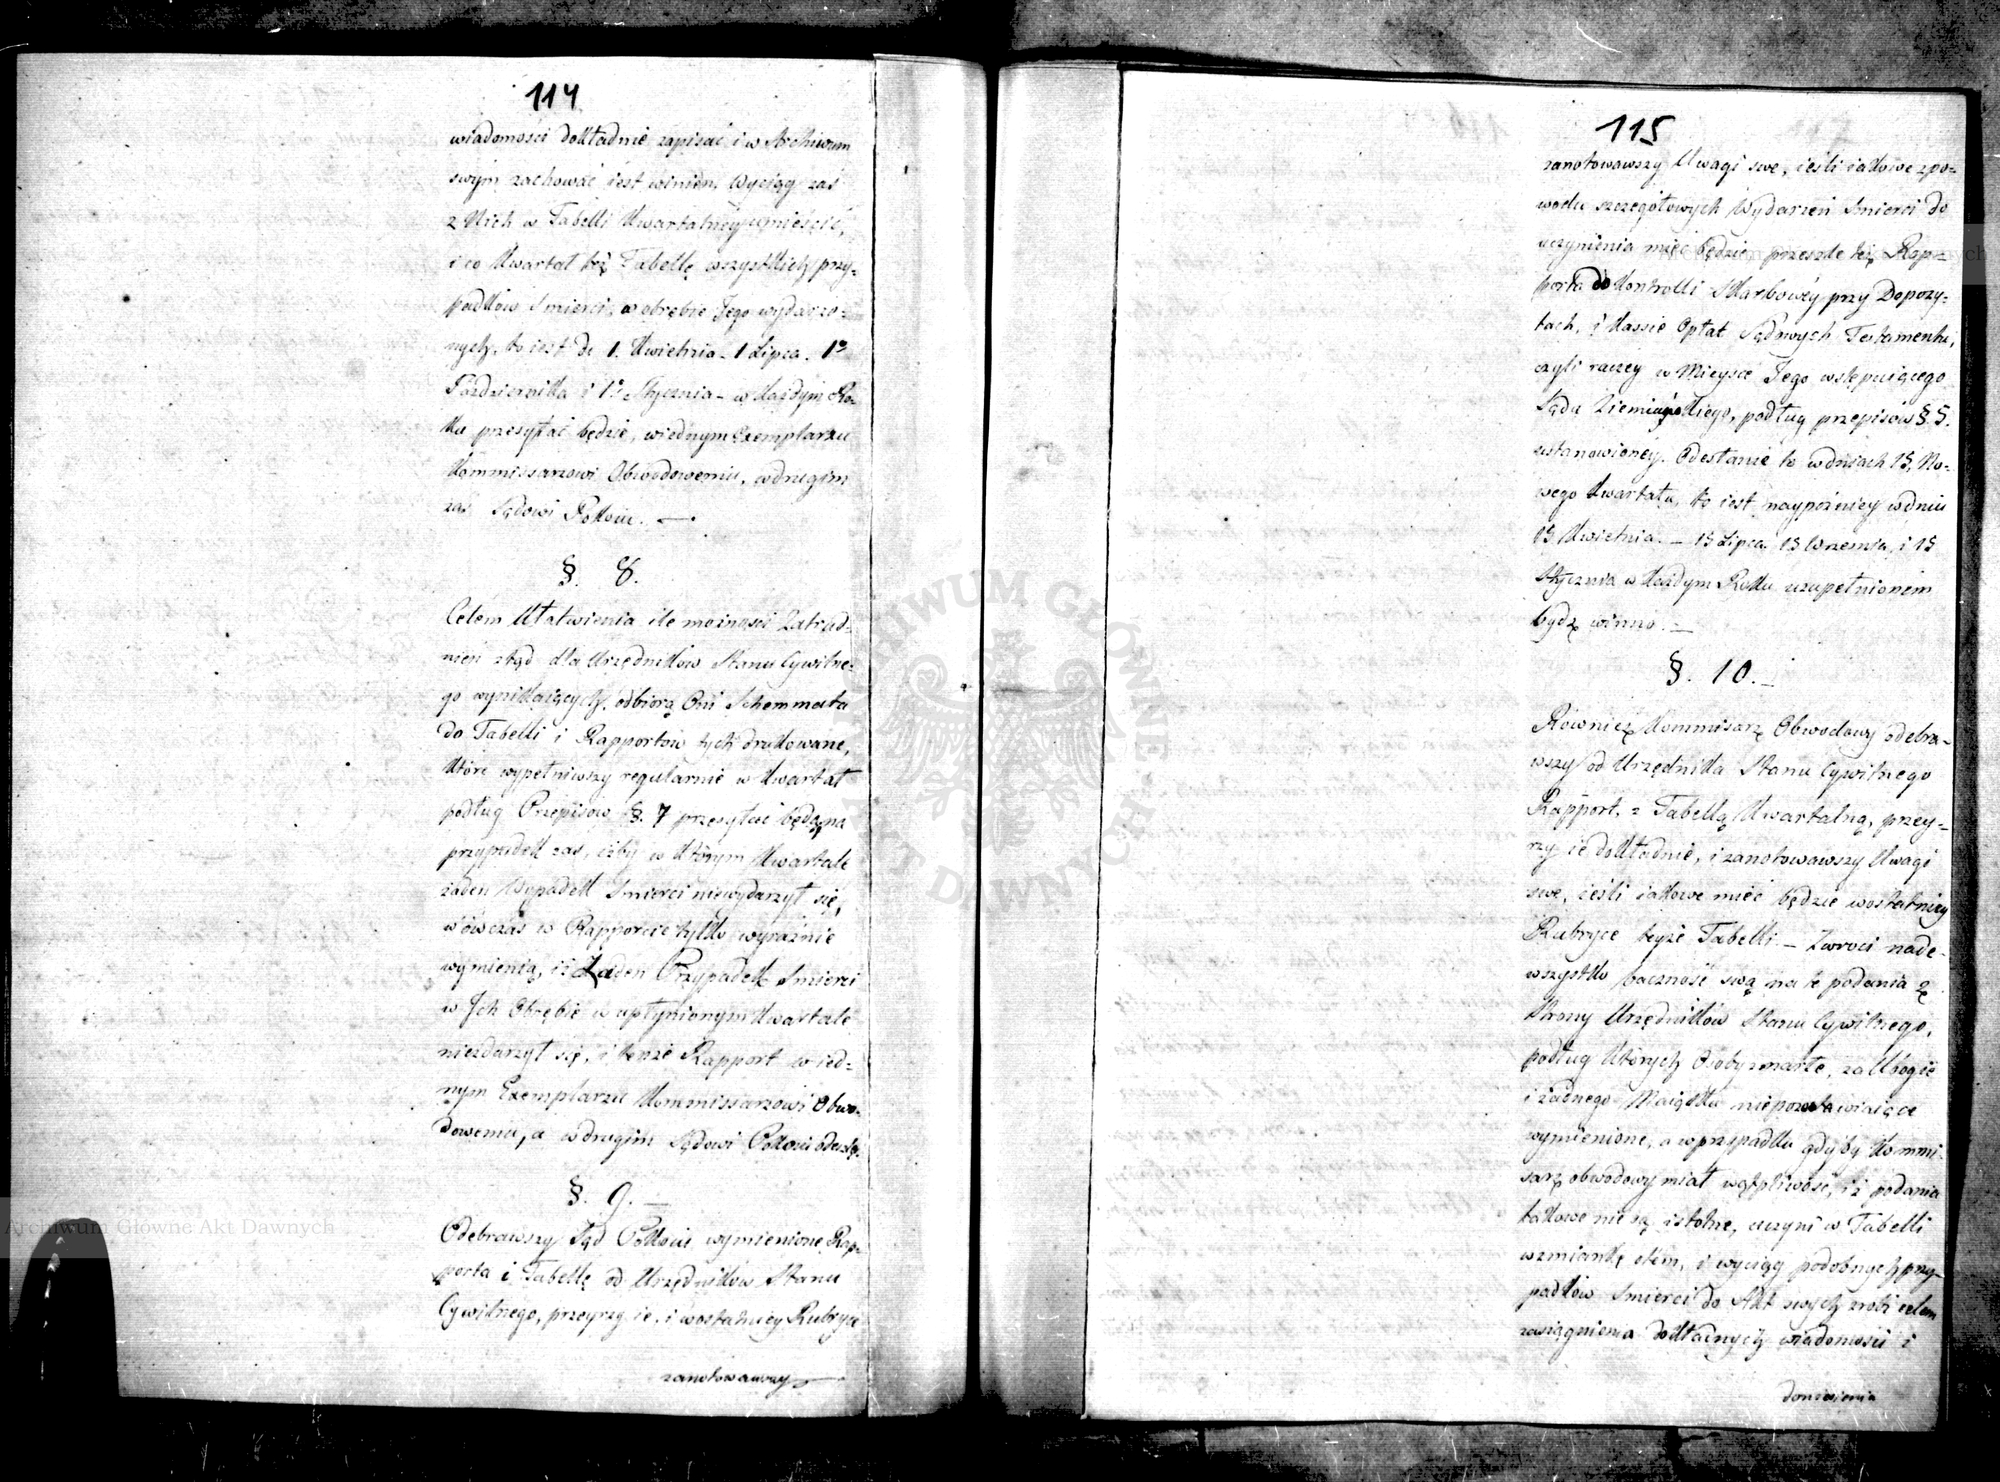 114
wiadomości dokładnie zapisać, i w Archiwum
swym zachować iest winien. Wyciąg zaś
z Nich w Tabelli Kwartalney umieścić,
i co Kwartał też Tabellę wszystkich przy-
padków Śmierci, w obrębie Jego wydarzo-
nych, to iest do 1. Kwietnia - 1 Lipca. 1o
Października i 1o Stycznia - w każdym Ro-
ku przesyłać będzie, w iednym Exemplarzu
Kommissarzowi Obwodowemu, w drugim
zaś Sądowi Pokoiu. —
§. 8.
Celem Ułatwienia ile możności Zatrud-
nień ztąd dla Urzędników Stanu Cywilne-
go wynikaiących, odbiorą Oni Schemmata
do Tabelli i Rapportów tych drukowane,
które wypełniwszy regularnie w Kwartał
podług Przepisow §. 7 przesyłać będą, na
przypadek zas, iżby w którym Kwartale
żaden Wypadek Śmierci niewydarzył się,
wówczas w Rapporcie tylko wyraźnie
wymienią, iż Żaden Przypadek Śmierci
w Ich Obrębie w upłynionym Kwartale
niezdarzył się, i tenże Rapport w ied-
nym Exemplarzu Kommissarzowi Obwo-
dowemu, a w drugim Sądowi Pokoiu odeszlą.
§. 9. —
Odebrawszy Sąd Pokoiu wymienione Rap-
porta i Tabellę od Urzędników Stanu
Cywilnego, przeyrzy ie, i w ostatniey Rubryce
zanotowawszy
115
zanotowawszy Uwagi swe, ieśli iakowe z po-
wodu szczegółowych Wydarzeń Śmierci do
uczynienia mieć będzie, przeszle też Rap-
porta do Kontrolli Skarbowey przy Depozy-
tach, i Kassie Opłat Sądowych Testamentu,
czyli raczey w Mieysce Jego wstępuiącego
Sądu Ziemiańskiego, podług przepisów §. 5.
ustanowioney. Odesłanie to w dniach 15, No-
wego Kwartału, to iest naypóźniey w dniu
15 Kwietnia. — 15 Lipca 15 Wrzesnia, i 15
Stycznia w Każdym Roku uzupełnionem
bydź winno. —
§. 10. —
Również Kommisarz Obwodowy odebra-
wszy od Urzędnika Stanu Cywilnego
Rapport, z Tabellą Kwartalną, przey-
rzy ie dokładnie, i zanotowawszy Uwagi
swe, ieśli iakowe mieć będzie w ostatniey
Rubryce teyże Tabelli. — Zwroci nade-
wszystko baczność swą na te podania ze
Strony Urzędników Stanu Cywilnego,
podług których Osoby zmarłe, za Ubogie
i żadnego Maiątku niepozostawiaiące
wymienione, a w przypadku gdyby Kommi-
sarz obwodowy miał wątpliwość, iż podania
takowe nie są istotne, uczyni w Tabelli
wzmiankę o tem, i wyciąg podobnych przy-
padków Śmierci do Akt swych zrobi celem
zasiągnienia dokładnych wiadomości i
doniesienia
Archiwum Główne Akt Dawnych